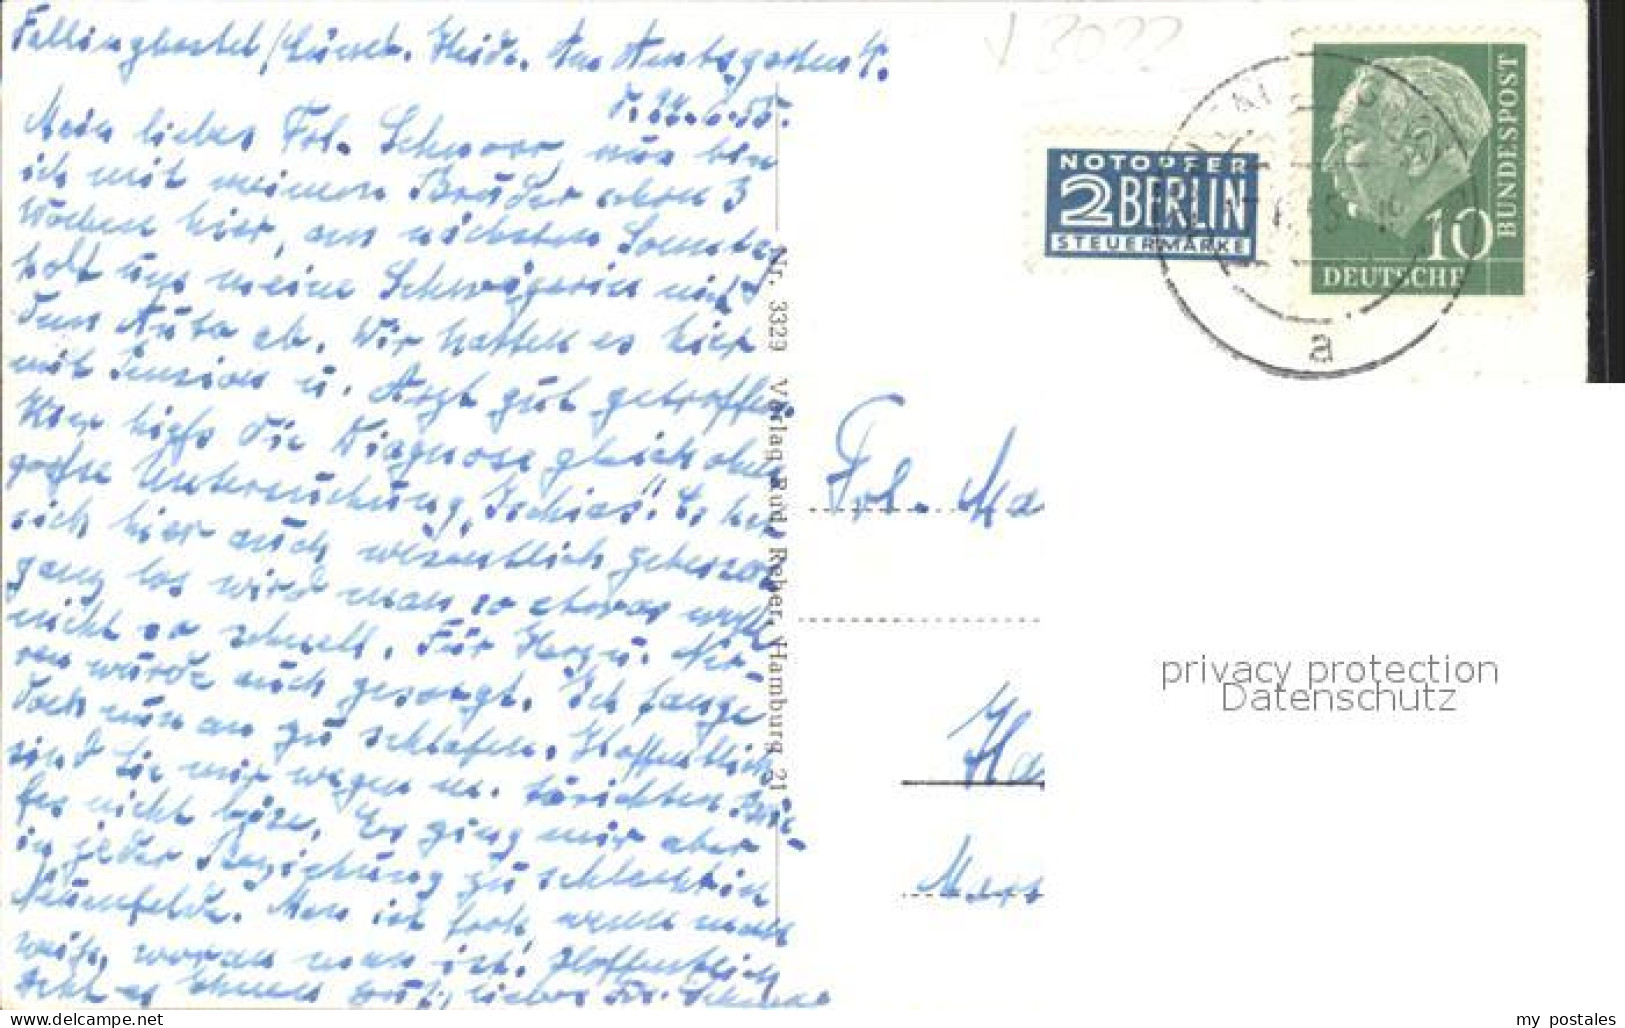 Fallingbostel/Lüneb. Heide. Am Amtsgarten 4.
d. 22.6.55.
Mein liebes Frl. Schnoor, nun bin
ich mit meinem Bruder schon 3
Wochen hier, am nächsten Sonntag
holt uns meine Schwägerin mit
dem Auto ab. Wir hatten es hier
mit Pension u. Arzt gut getroffen.
Hier hieß die Diagnose gleich ohne
große Untersuchung „Ischias". Es hat
sich hier auch wesentlich gebessert
ganz los wird man so etwas wohl
nicht so schnell. Für Herz u. Ner-
ven wurde auch gesorgt. Ich fange
doch nun an zu schlafen. Hoffentlich
sind Sie mir wegen m. törichten Brie-
fes nicht böse. Es ging mir aber
in jeder Beziehung zu schlecht in
Neuenfelde. Man ist froh wenn man
weiß, woran man ist! Hoffentlich
geht es Ihnen gut, liebes Frl. Schnoor
Nr. 3329 Verlag Rud. Reher, Hamburg 21
NOTOPFER
2 BERLIN
STEUERMARKE
10
DEUTSCHE
BUNDESPOST
a
Frl. Ma
Ha
privacy protection
Datenschutz
Delcampe.net
my postales